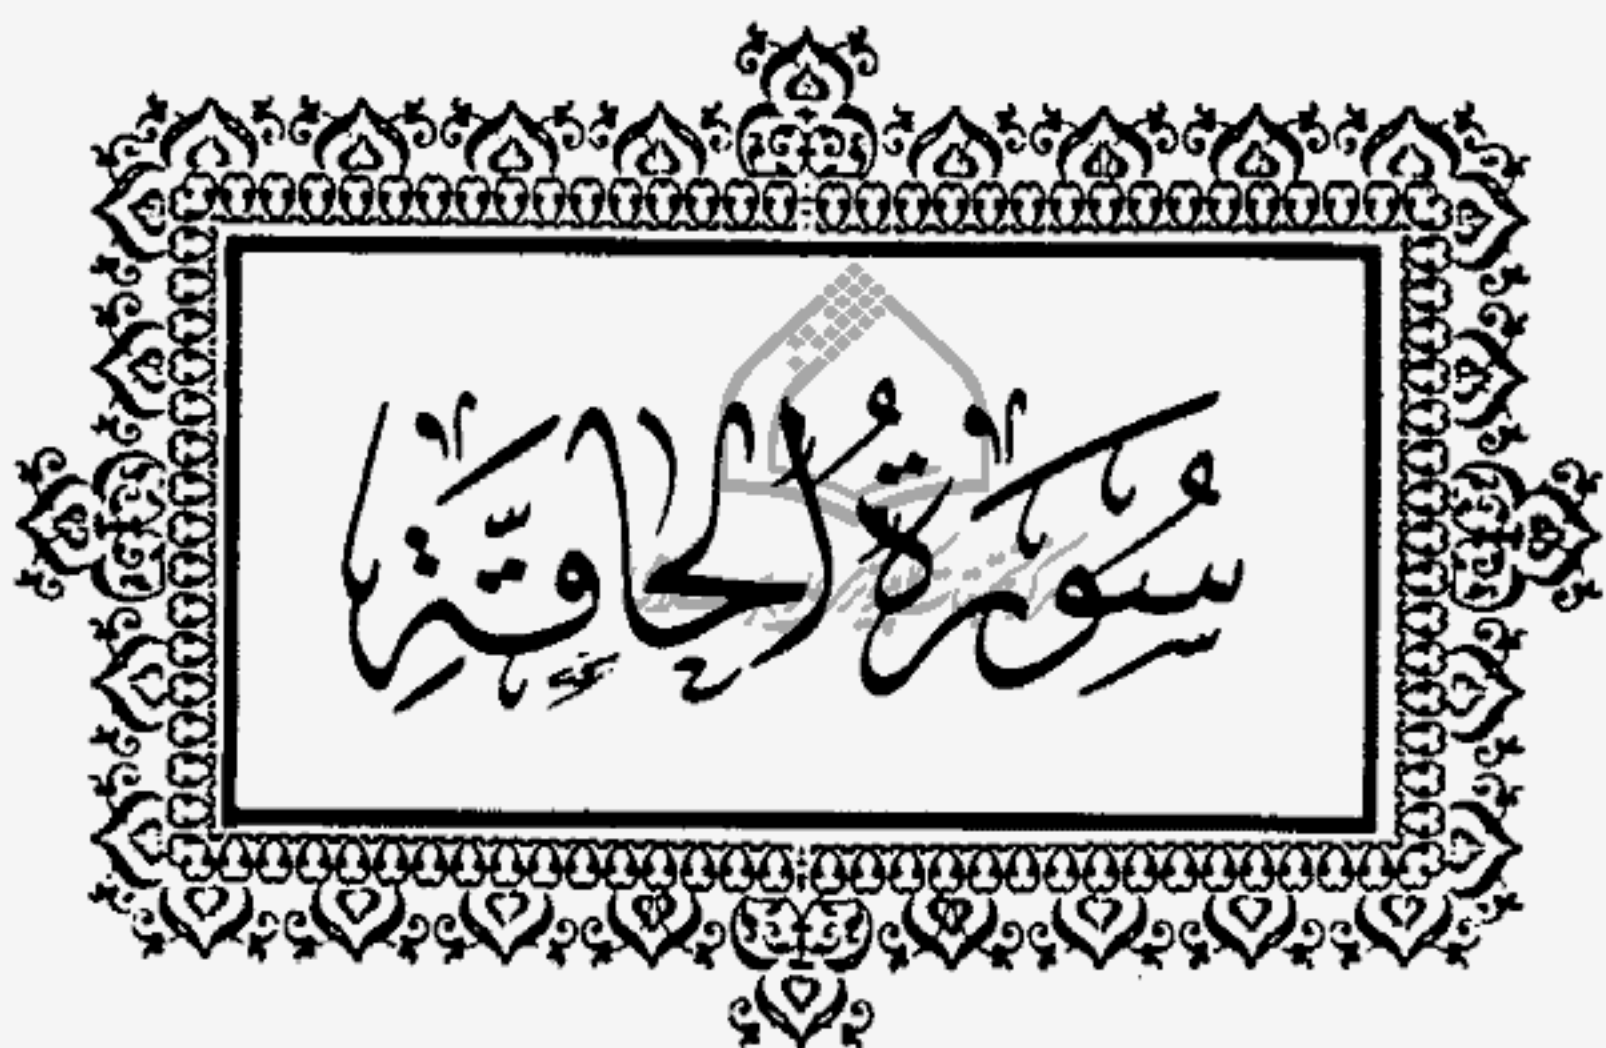 سُورَةُ الحَاقَّةِ